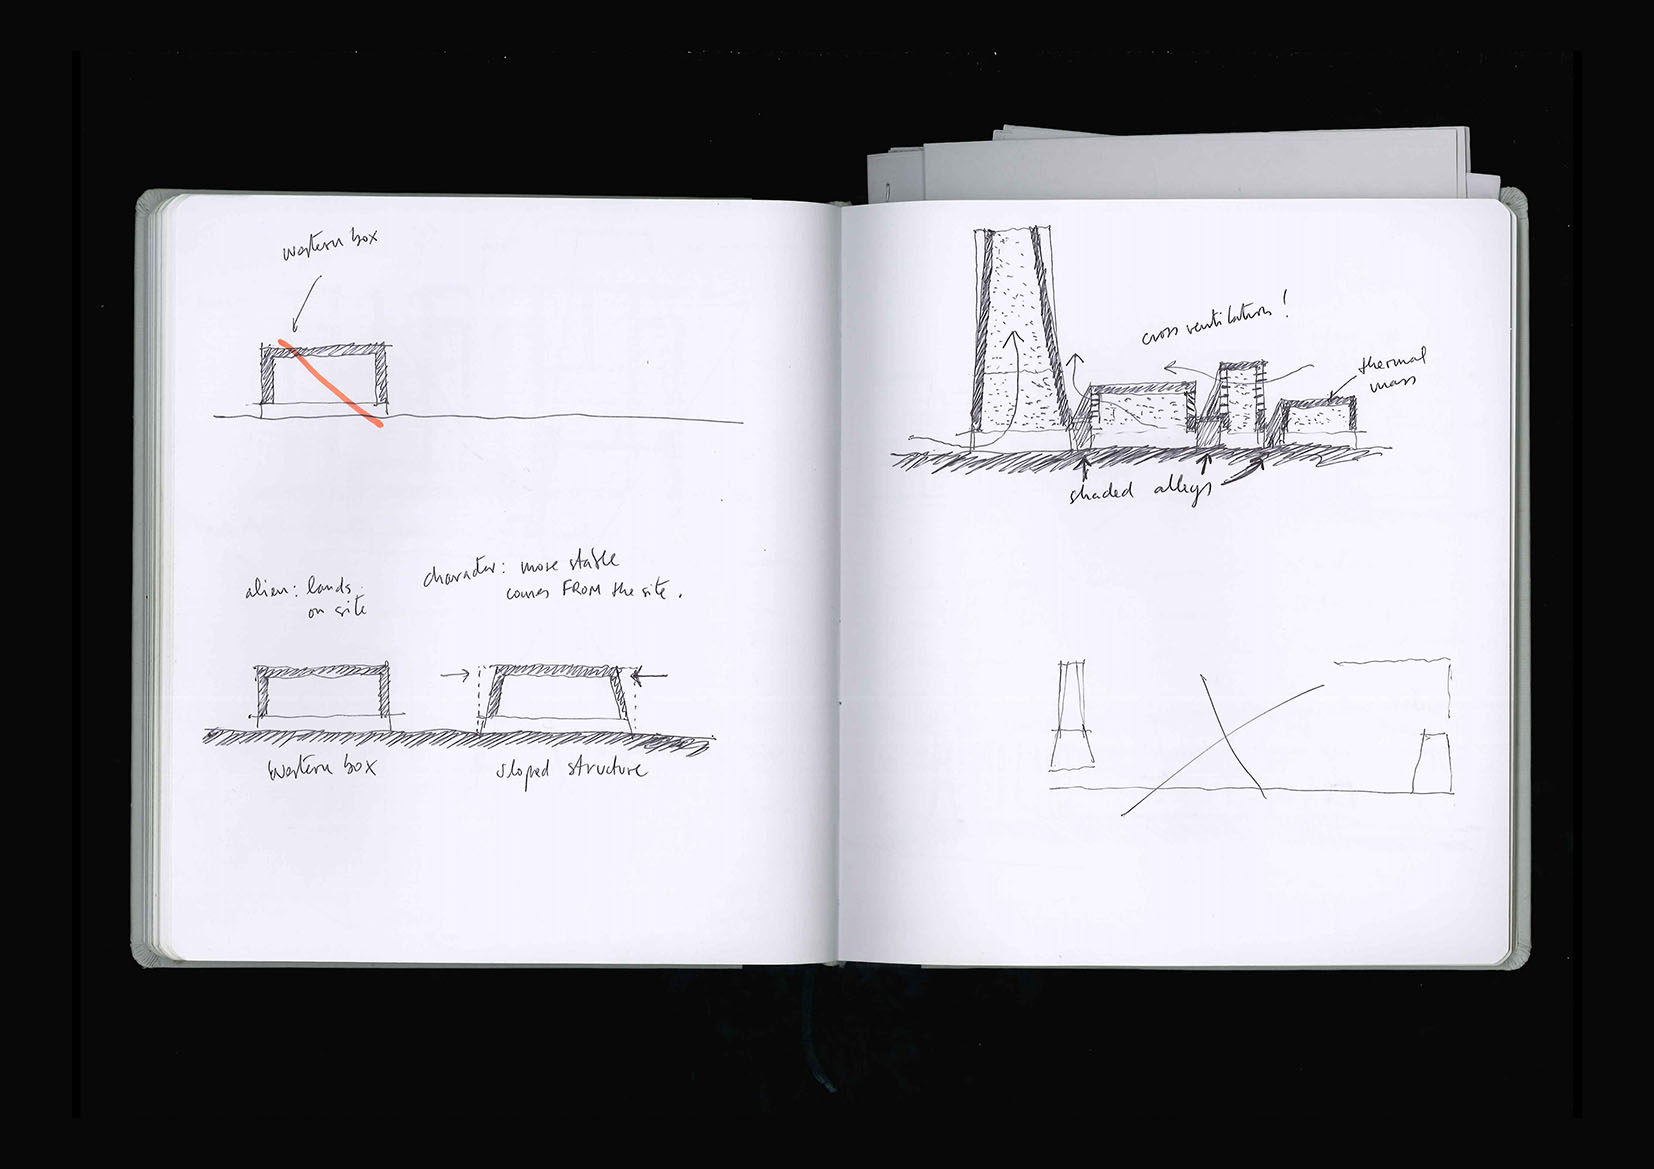 western box
alien: lands
on site
character: more stable
comes FROM the site.
Western box
sloped structure
cross ventilation!
thermal
mass
shaded alleys